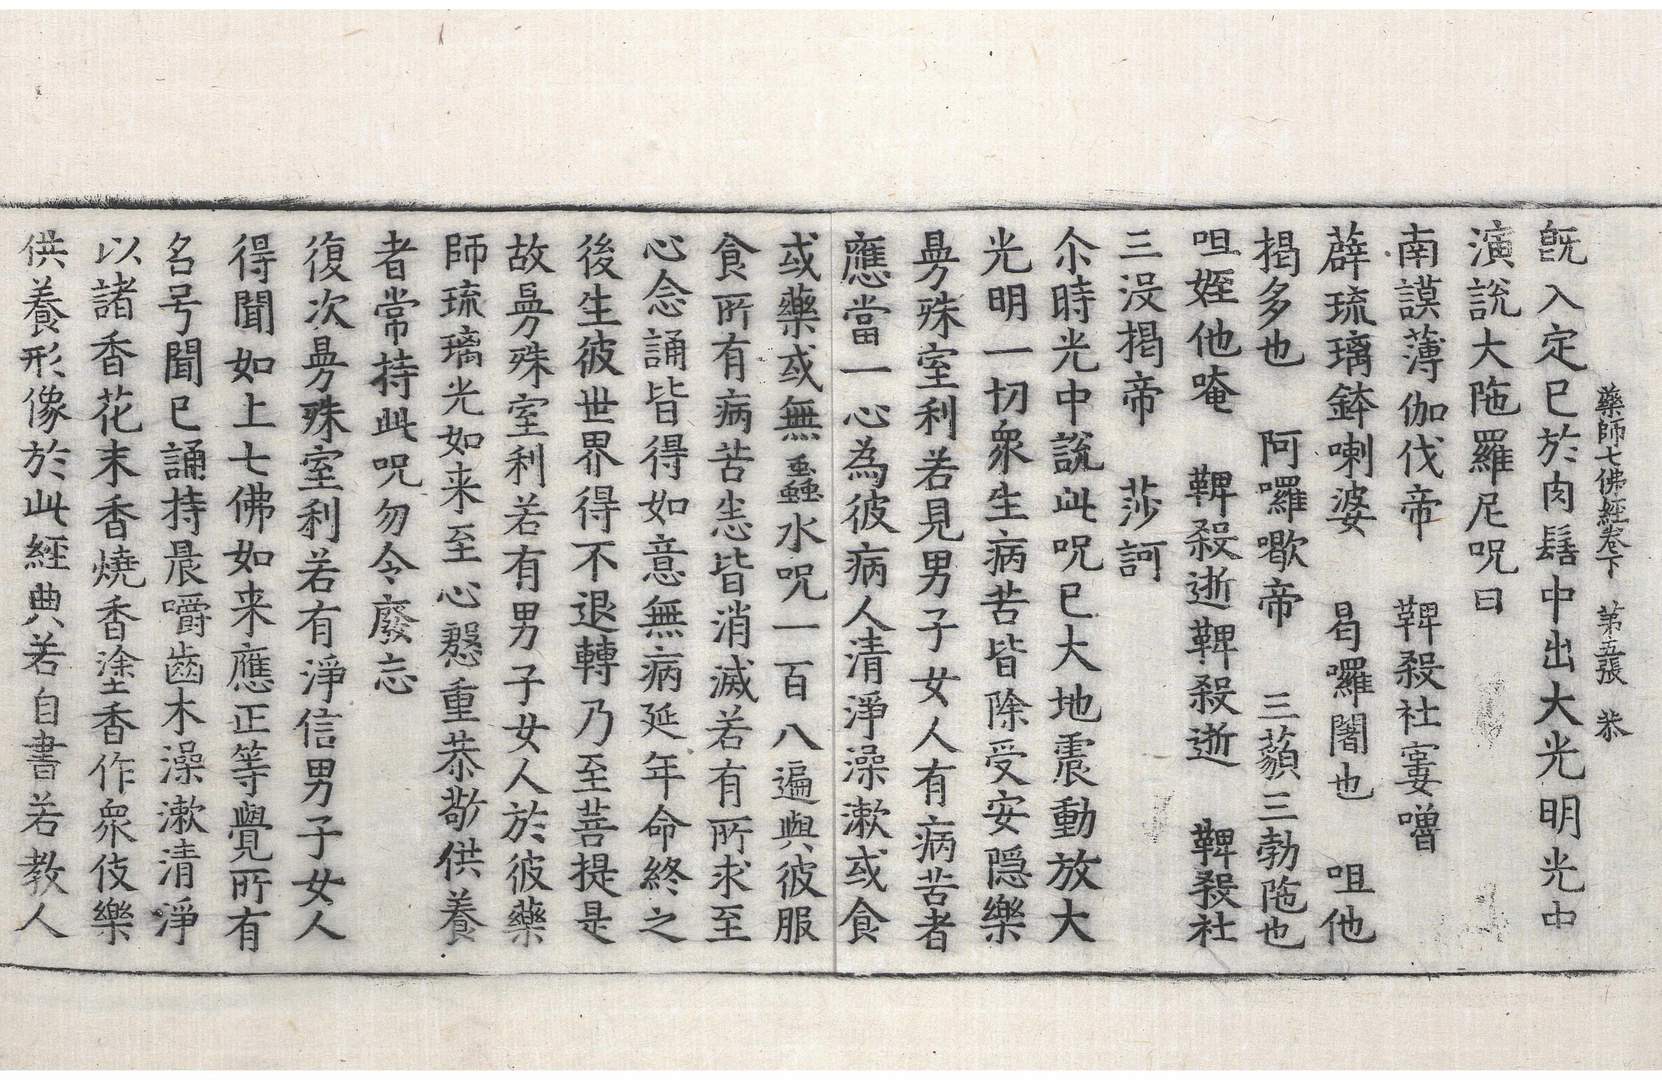 藥師七佛經卷下　第五張　恭
旣入定已於肉髻中出大光明光中
演說大陁羅尼呪曰
南謨薄伽伐帝　鞞殺社窶嚕
薜琉璃鉢喇婆　曷囉闍也　呾他
揭多也　阿囉歇帝　三藐三勃陁也
呾姪他唵　鞞殺逝鞞殺逝　鞞殺社
三沒揭帝　莎訶
尒時光中說此呪已大地震動放大
光明一切衆生病苦皆除受安隱樂
曼殊室利若見男子女人有病苦者
應當一心為彼病人清淨澡漱或食
或藥或無蟲水呪一百八遍與彼服
食所有病苦悉皆消滅若有所求至
心念誦皆得如意無病延年命終之
後生彼世界得不退轉乃至菩提是
故曼殊室利若有男子女人於彼藥
師琉璃光如来至心慇重恭敬供養
者常持此呪勿令廢忘
復次曼殊室利若有淨信男子女人
得聞如上七佛如来應正等覺所有
名号聞已誦持晨嚼齒木澡漱清淨
以諸香花末香燒香塗香作衆伎樂
供養形像於此經典若自書若教人